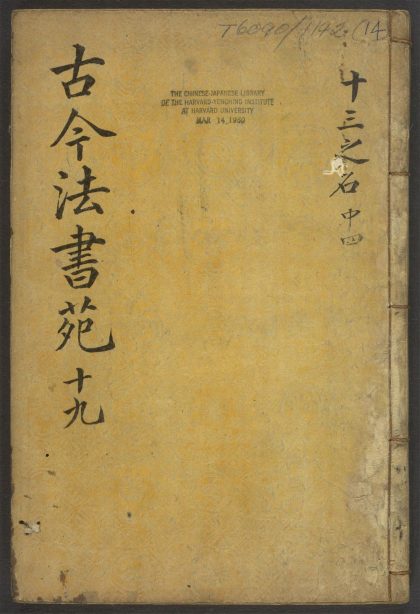 T6090/1142 (14
十三之石中四
THE CHINESE-JAPANESE LIBRARY
OF THE HARVARD-YENCHING INSTITUTE
AT HARVARD UNIVERSITY
MAR 14 1960
古今法書苑十九